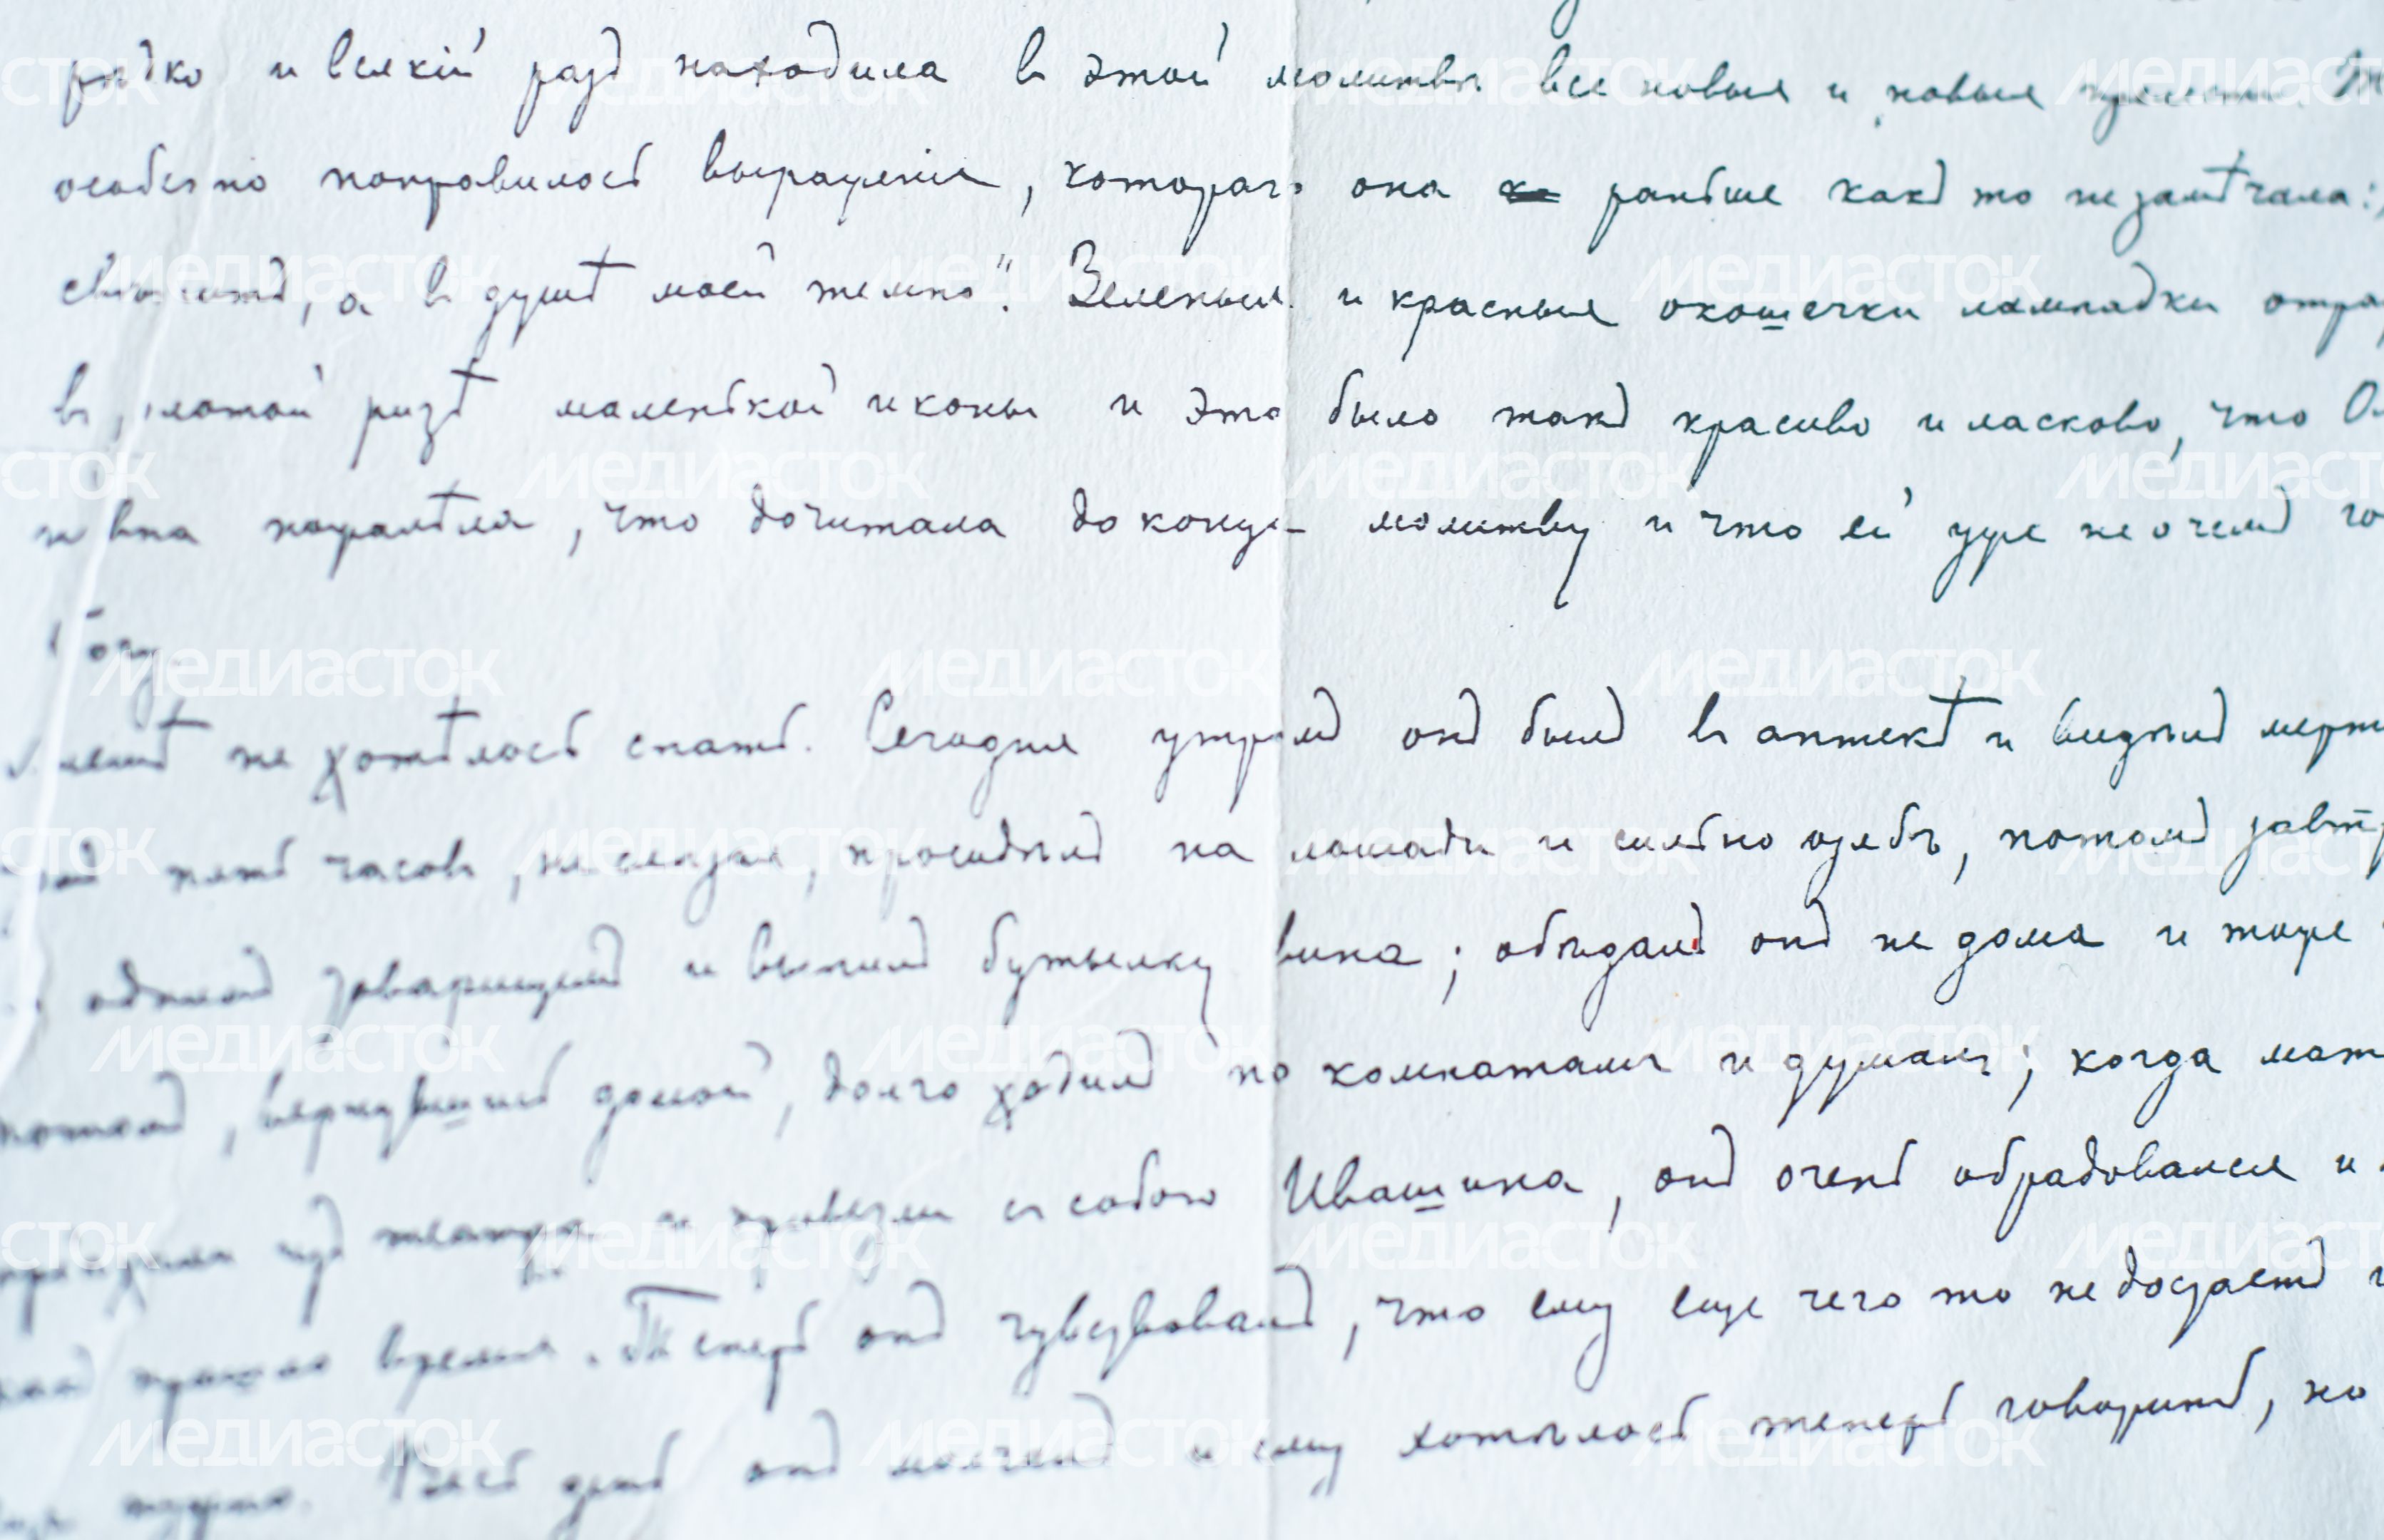 рѣдко и всякій разъ находила въ этой молитвѣ все новыя и новыя прелести.
особенно понравилось выраженіе, котораго она раньше какъ то не замѣчала:
свѣтитъ, а въ душѣ моей темно". Зеленыя и красныя окошечки лампадки отра
въ золотой ризѣ маленькой иконы и это было такъ красиво и ласково, что Ол
и вна пожалѣла, что дочитала до конца молитву и что ей уже не о чемъ го
Богу.
не хотѣлось спать. Сегодня утромъ онъ былъ въ аптекѣ и видѣлъ мерт
пять часовъ, не слезая, просидѣлъ на лошади и сильно озябъ, потомъ завтр
однимъ товарищемъ и выпилъ бутылку вина; обѣдалъ онъ не дома и тоже
потомъ, вернувшись домой, долго ходилъ по комнатамъ и думалъ; когда мат
пріѣхали изъ театра и привезли съ собою Ивашина, онъ очень обрадовался и
время. Теперь онъ чувствовалъ, что ему еще чего то не достаетъ и
Весь день онъ молчалъ и ему хотѣлось теперь говорить, но